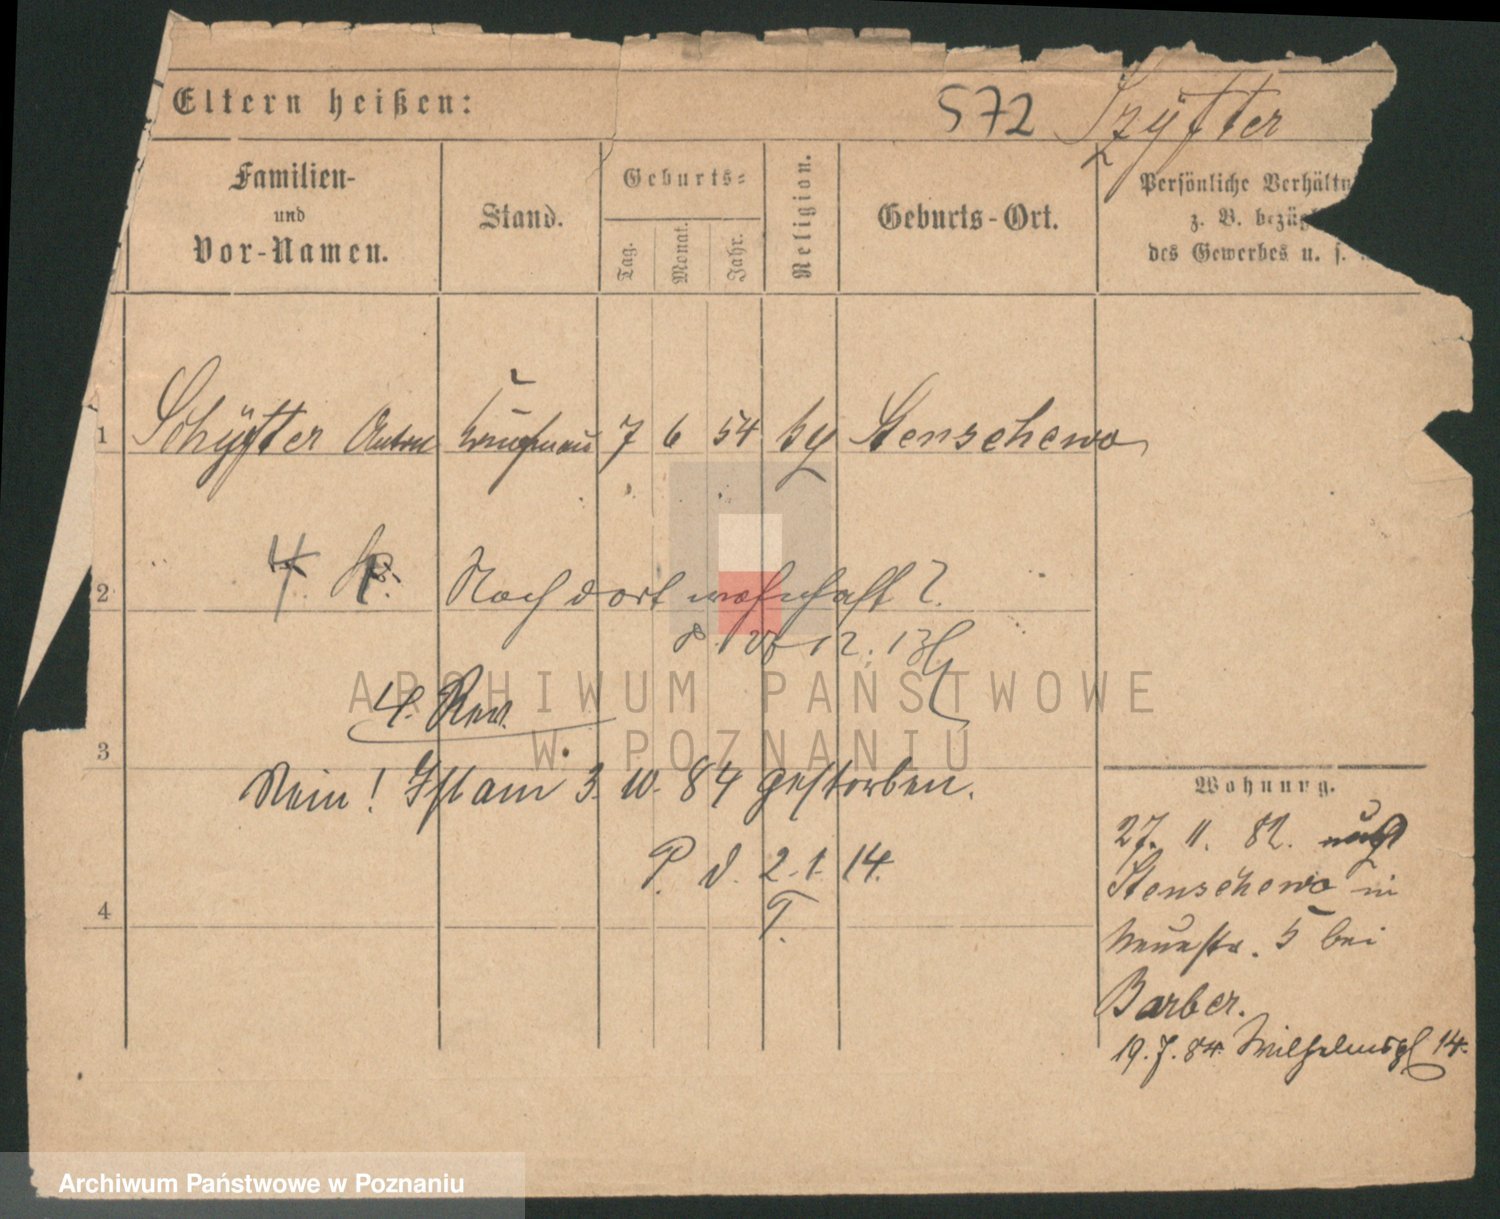 Eltern heißen:
572 Szyfter
Familien-
und
Vor-Namen.
Stand.
Geburts-
Tag.
Monat.
Jahr.
Religion.
Geburts-Ort.
Persönliche Verhältn
z. B. bezüg
des Gewerbes u. s.
1 Schyfter Anton Kaufmann 7 6 54 Stenschewo
2 Noch dort wohnhaft?
4. Rev.
3
Nein! Ist am 3. 10. 84 gestorben.
P. d. 2. 1. 14.
T.
4
Wohnung.
27. 11. 82. aus
Stenschewo in
Neuestr. 5 bei
Barber.
19. 7. 84 Wilhelmspl 14.
ARCHIWUM PAŃSTWOWE
W POZNANIU
Archiwum Państwowe w Poznaniu